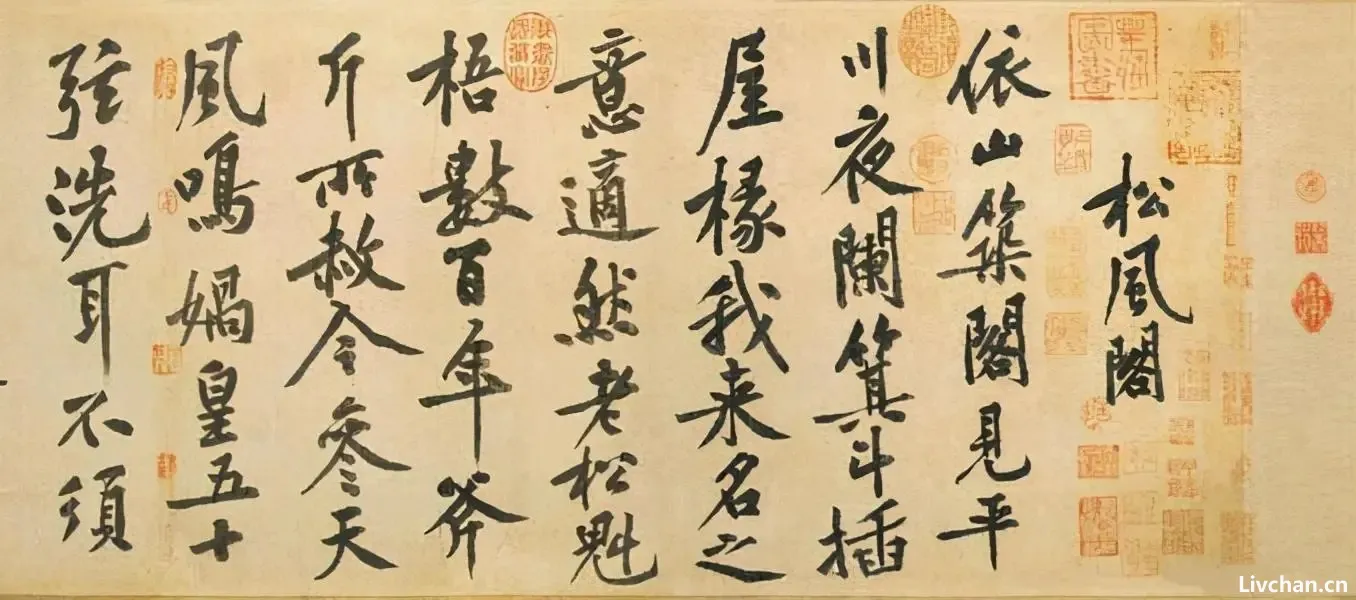 松風閣
依山築閣見平
川夜闌箕斗插
屋椽我来名之
意適然老松魁
梧數百年斧
斤所赦今參天
風鳴媧皇五十
弦洗耳不須
Livchan.cn